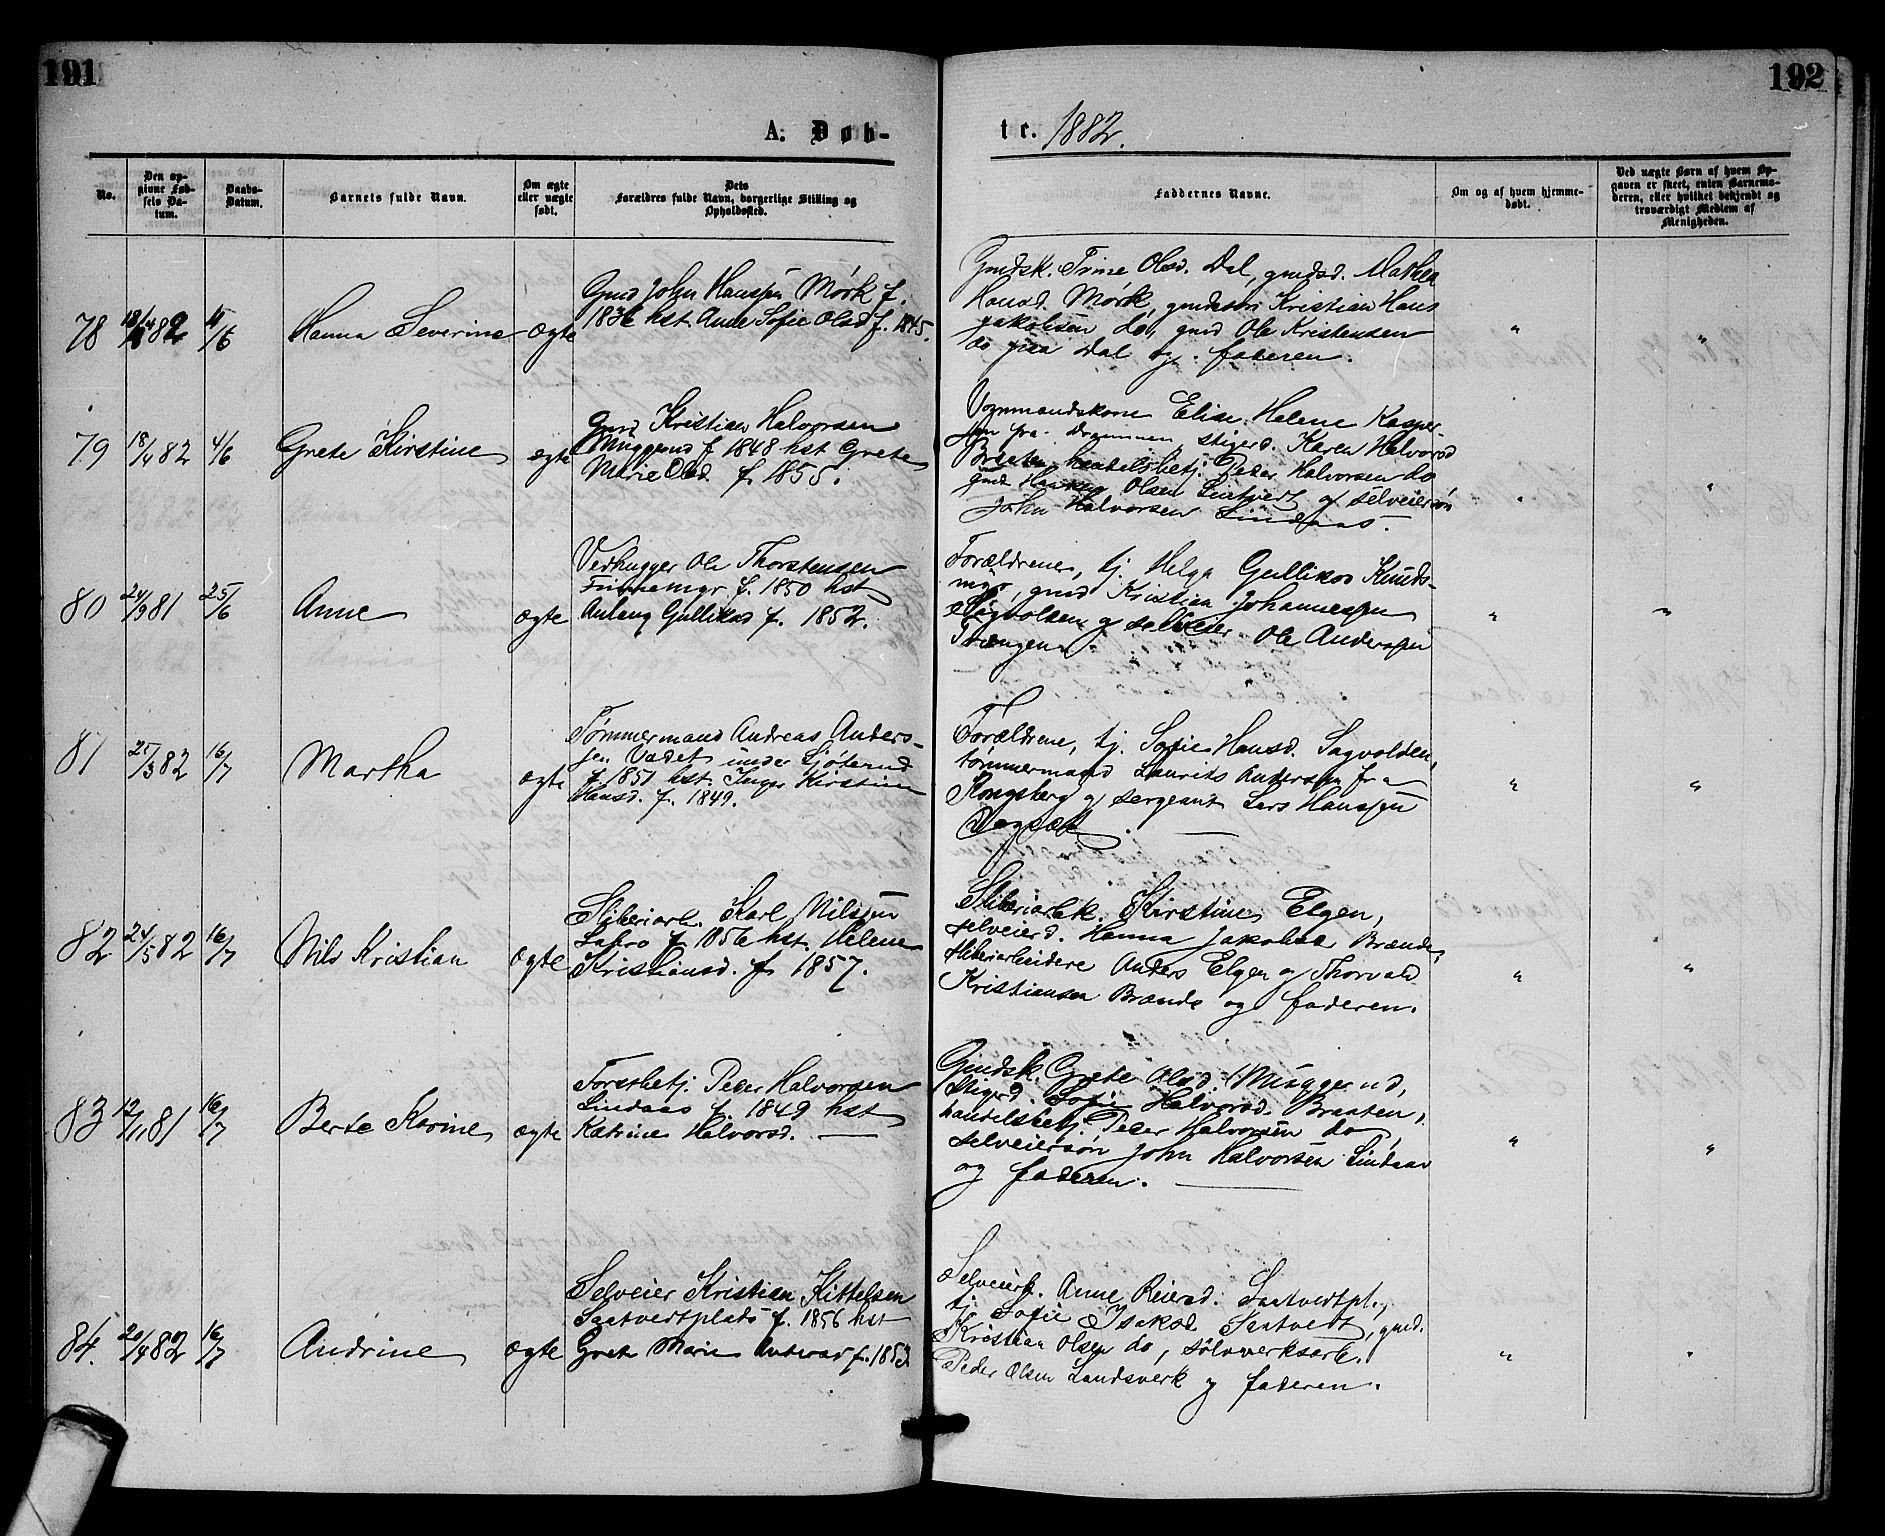 191
192
A. Døb-
te. 1882.
No.
Den op-
givne Fød-
sels Da-
tum.
Daabs-
Datum.
Barnets fulde Navn.
Om ægte
eller uægte
født.
Dets
Forældres fulde Navn, borgerlige Stilling og
Opholdssted.
Faddernes Navne.
Om og af hvem hjemme-
døbt.
Ved uægte Børn af hvem Op-
gaven er skeet, enten Barnemo-
deren, eller hvilket bekjendt og
troværdigt Medlem af
Menigheden.
78 18/4 82 /6 Hanna Severine ægte
Gmd John Hanssen Mørk f.
1836 hst Anne Sofie Olsd f. 1845.
Gmdsk. Trine Olsd. Dal, gmdsd. Mathea
Hansd. Mørk, gmdssøn Kristian Hans
Jakobsen do, gmd Ole Kristensen
do paa Dal og faderen.
" "
79 18/4 82 4/6 Grete Kirstine ægte
Gmd Kristian Halvorsen
Muggerud f 1848 hst Grete
Marie Olsd. f. 1855.
Vognmandskone Elise Helene Kasper-
sen fra Drammen, stigerd. Karen Halvorsd
Braaten, handelsbetj. Peder Halvorsen do
gmd Olsen og selveiersøn
John Halvorsen Lindaas.
" "
80 24/9 81 25/6 Anne ægte
Vedhugger Ole Thorstensen
f. 1850 hst
Anlaug Gulliksd f. 1852.
Forældrene, tj. Helga Gulliksd Knuds-
myr, gmd Kristian Johannessen
og selveier Ole Anderssen
Trængen.
" "
81 25/3 82 16/7 Martha ægte
Tømmermand Andreas Anders-
sen Vadet under
f. 1851 hst. Inger Kirstine
Hansd. f. 1849.
Forældrene, tj. Sofie Hansd. Sagvolden,
tømmermand Laurits Anderssen fra
Kongsberg og sergeant Lars Hanssen
" "
82 24/5 82 16/7 Nils Kristian ægte
Sliberiarb. Karl Nilssen
Labro f. 1856 hst. Helene
Kristiansd. f. 1857.
Sliberiarbk. Kirstine Elgen,
selveierd. Hanna Jakobsd Brænde,
sliberiarbeidere Anders Elgen og Thorvald
Kristiansen Brænde og faderen.
" "
83 12/11 81 16/7 Berte Karine ægte
Forstbetj. Peder Halvorsen
Lindaas f. 1849 hst
Katrine Halvorsd.
Gmdsk. Grete Olsd. Muggerud,
stigerd. Sofie Halvorsd. Braaten,
handelsbetj. Peder Halvorsen do,
selveiersøn John Halvorsen Lindaas
og faderen.
" "
84. 20/4 82 16/7 Andrine ægte
Selveier Kristian Kittelsen
Saatvedtplads f. 1856 hst
Grete Marie Andersd f.
Selveierk. Anne Reiersd. Saatvedtpl.,
tj Sofie Isaksd. Saatvedt, gmd.
Kristian Olsen do, sölvverksarb.
Peder Olsen Landsverk og faderen.
" "